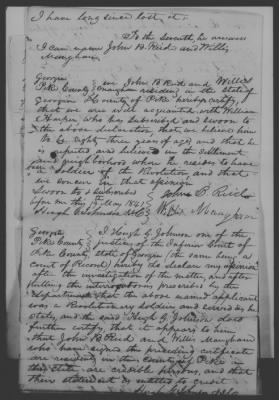 I have long since lost it.
To the seventh he answers
I can name John B. Reid and Willis
Mangham
Georgia
Pike County We John B Reid and Willis
Mangham residing in the State of
Georgia & County of Pike hereby certify
that we are well acquainted with William
Harper who has subscribed and sworn to
the above declaration, that we believe him
to be eighty three years of age and that he
is reputed and believed in the settlement
and neighborhood where he resides to have
been a soldier of the Revolution, and that
we concur in that opinion
Sworn to & subscribed John B. Reid
before me this May 1841
Hugh G Johnson Willis Mangham
Georgia
Pike County I Hugh G Johnson one of the
justices of the Inferior Court of
Pike County, State of Georgia (the same being a
court of Record) hereby do declare my opinion
after the investigation of the matter and after
putting the interrogatories prescribed by the
department that the above named applicant
was a Revolutionary soldier and served as he
states, and the said Hugh G Johnson does
further certify, that it appears to him
that John B Reid and Willis Mangham
who have signed the preceding certificate
are residents in the County of Pike in
this State, are credible persons, and that
their statement is entitled to credit
Hugh G Johnson